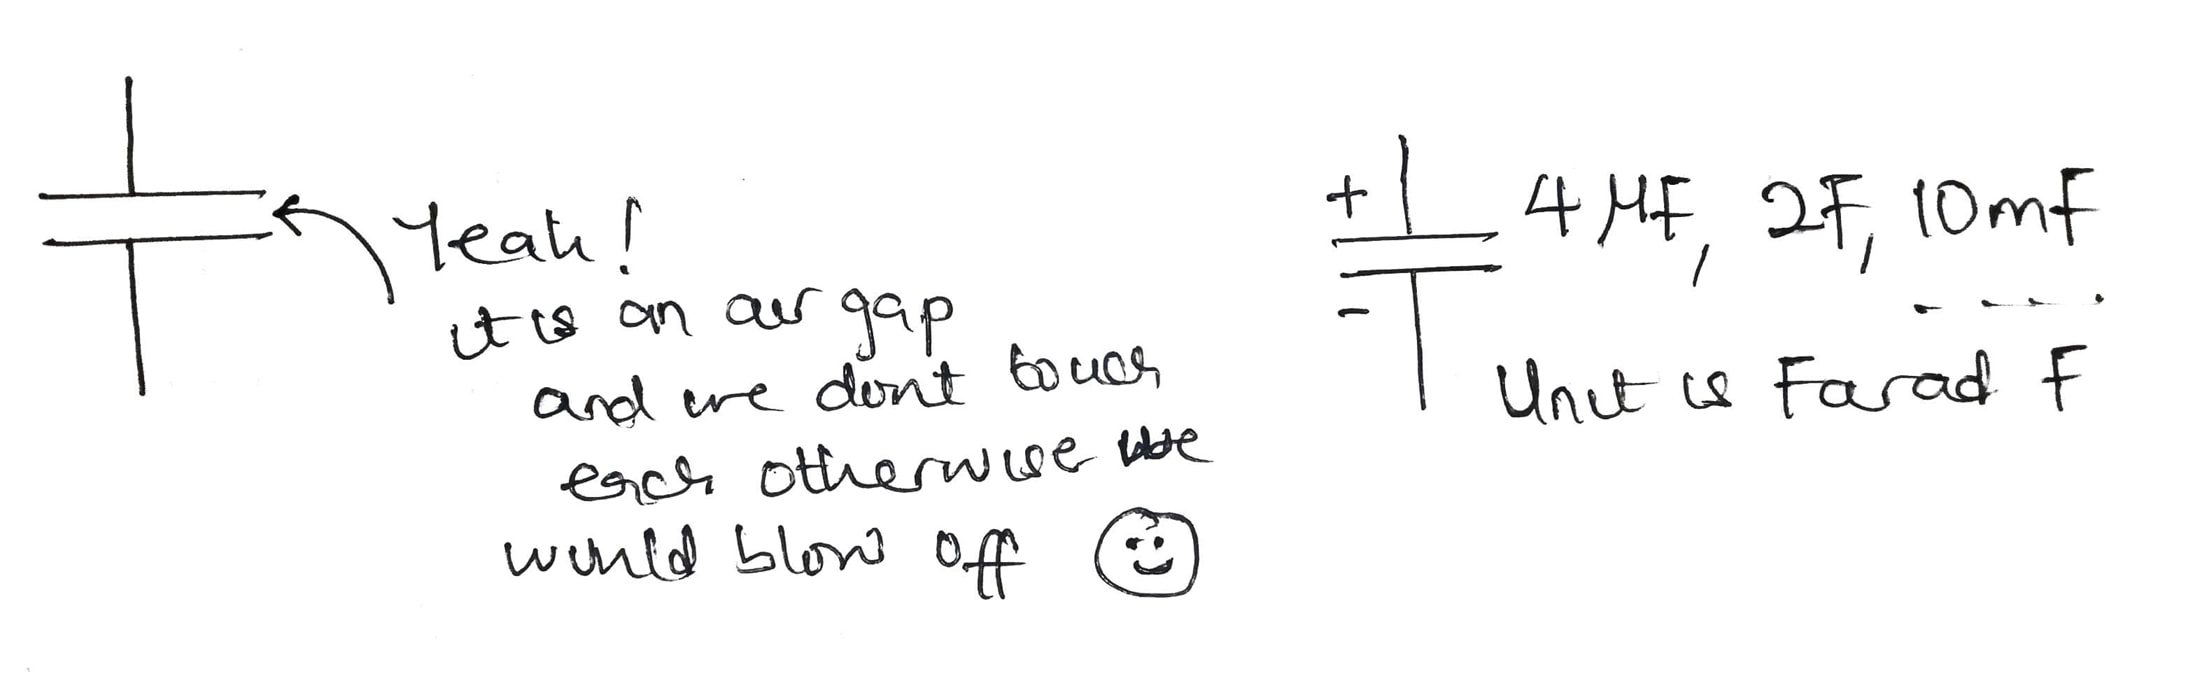 Yeah!
it is an air gap
and we dont touch
each otherwise we
would blow off
+
-
4 μF, 2F, 10mF
- - - - .
Unit is Farad F